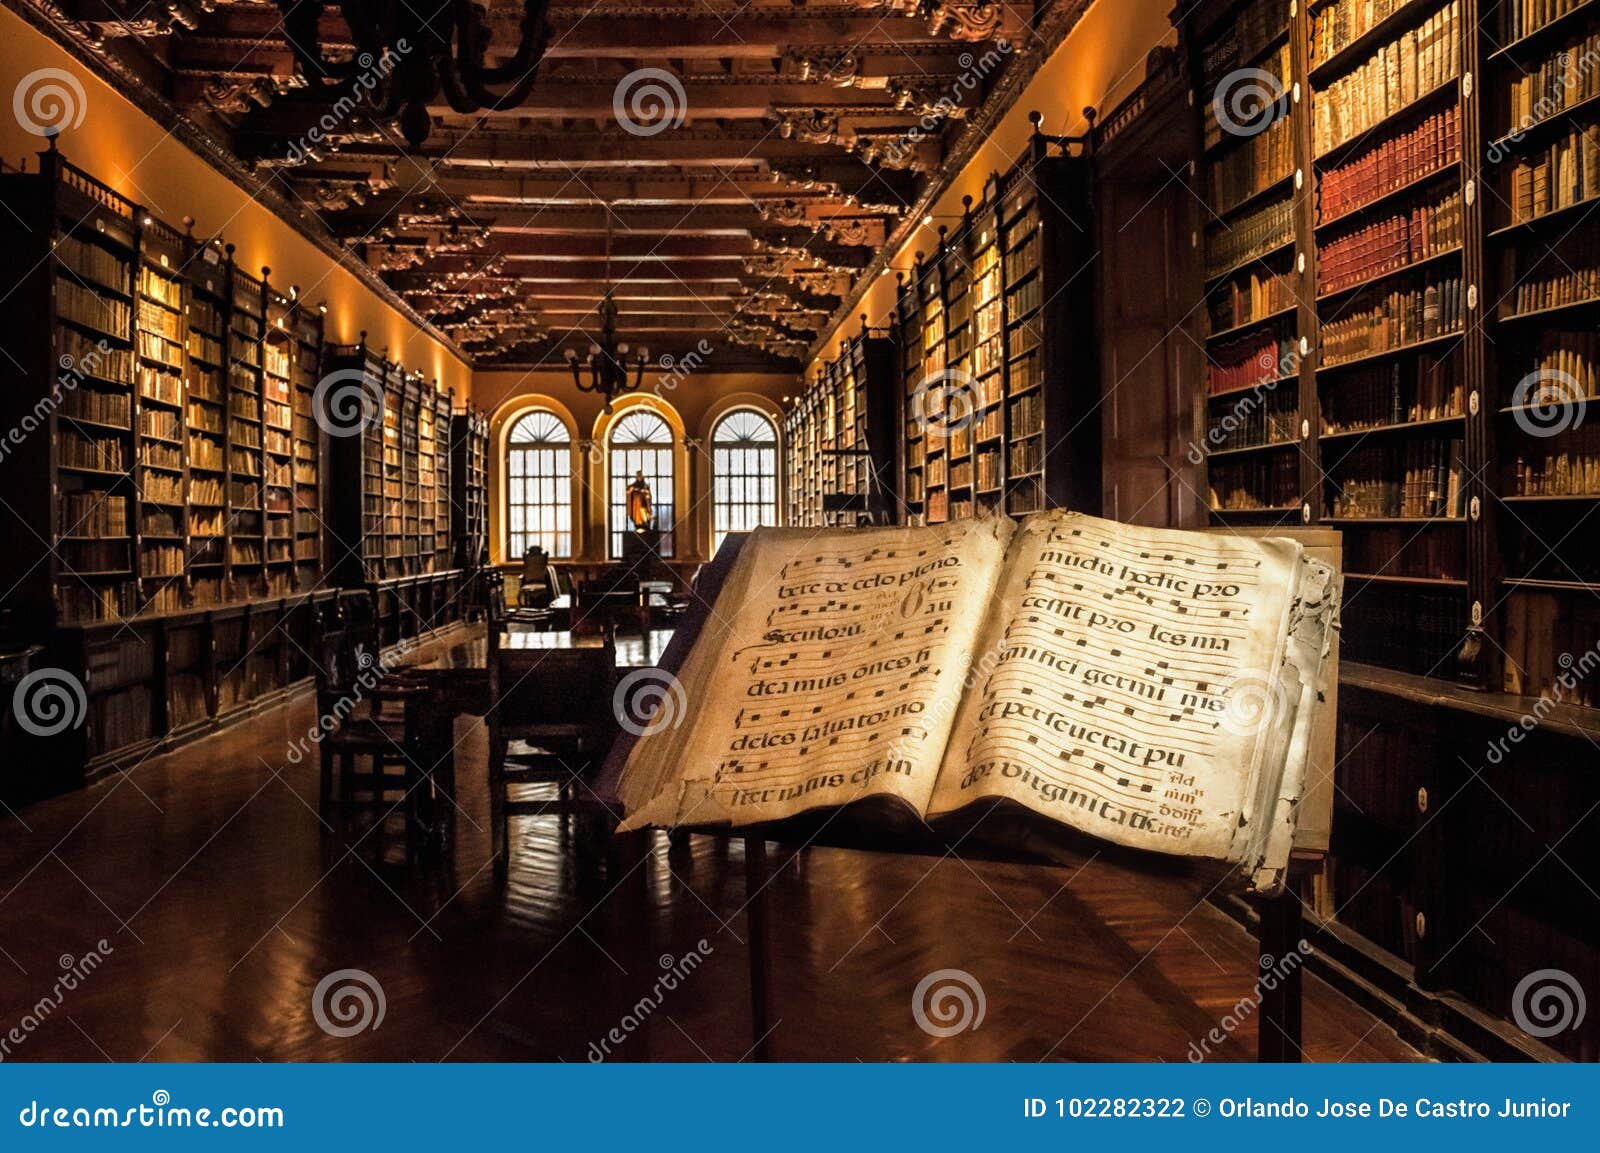 bere de celo pleno.
Seculorū. Gau
deamus ōnes fi
deles saluator no
ster natus est in
mūdū hodie pro
cessit pro les ma
gnifici germi nis
et perseuerat pu
dor virginitatis
dreamstime
dreamstime.com
ID 102282322 © Orlando Jose De Castro Junior